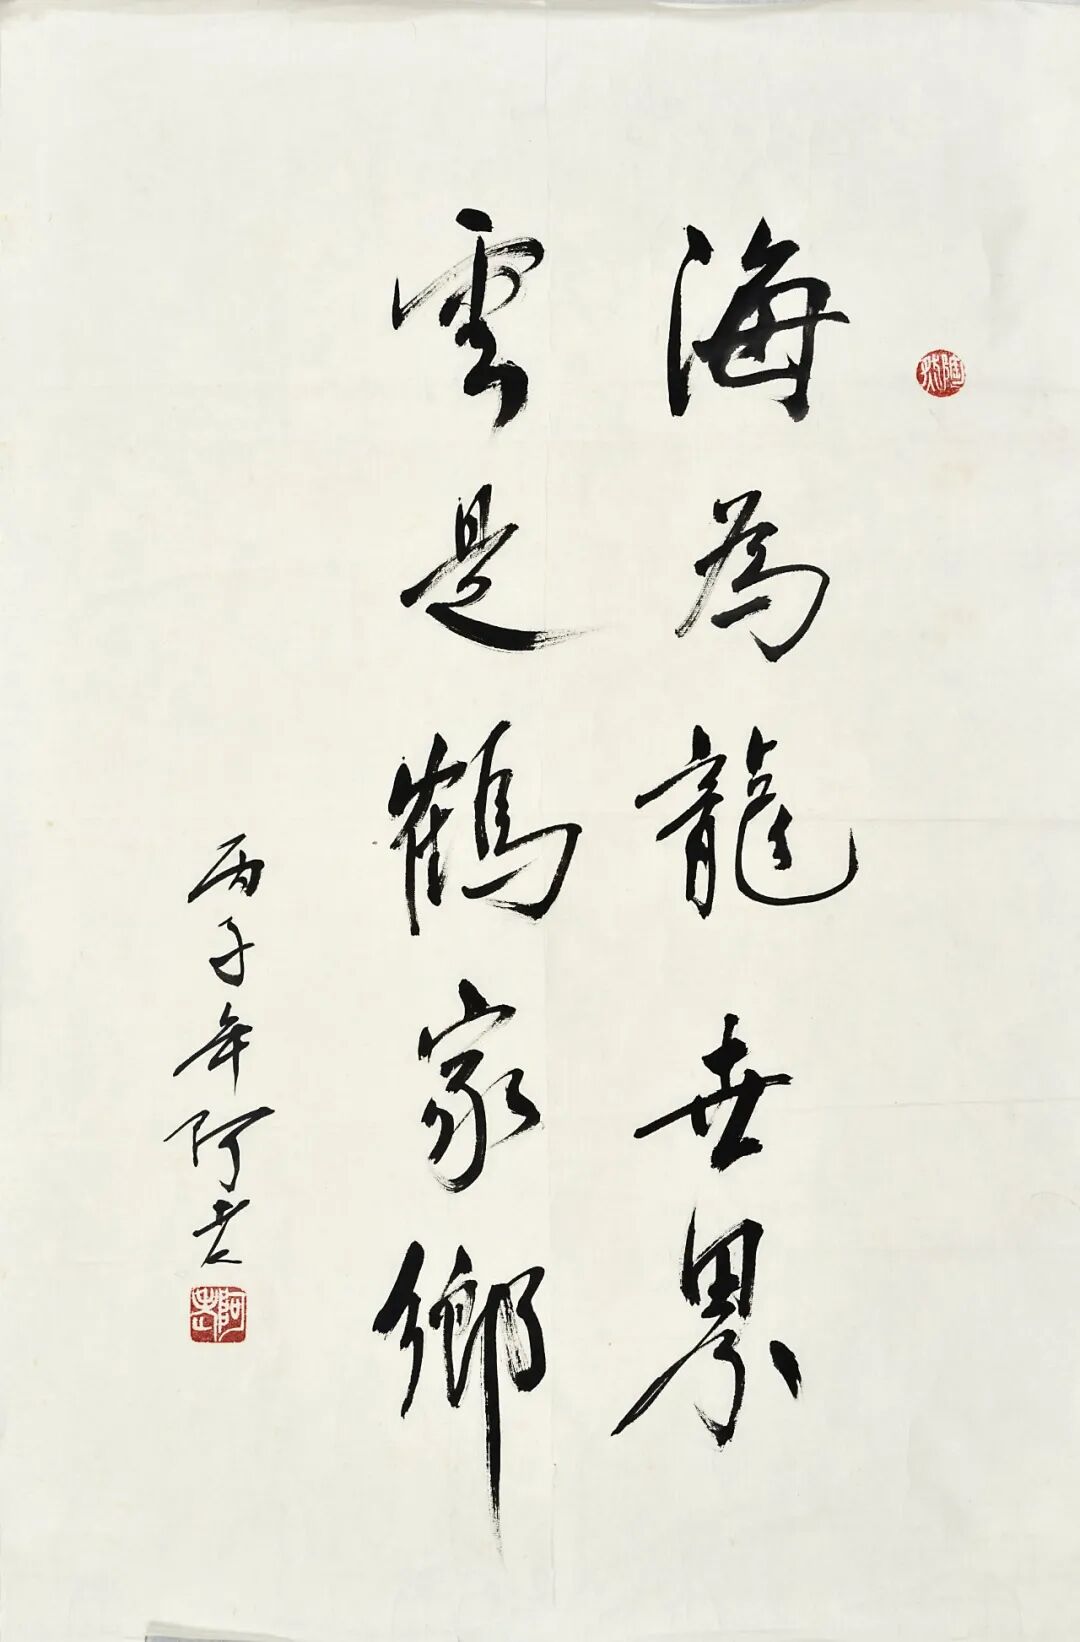 海為龍世界
雲是鶴家鄉
丙子年阿老
陶然
阿老